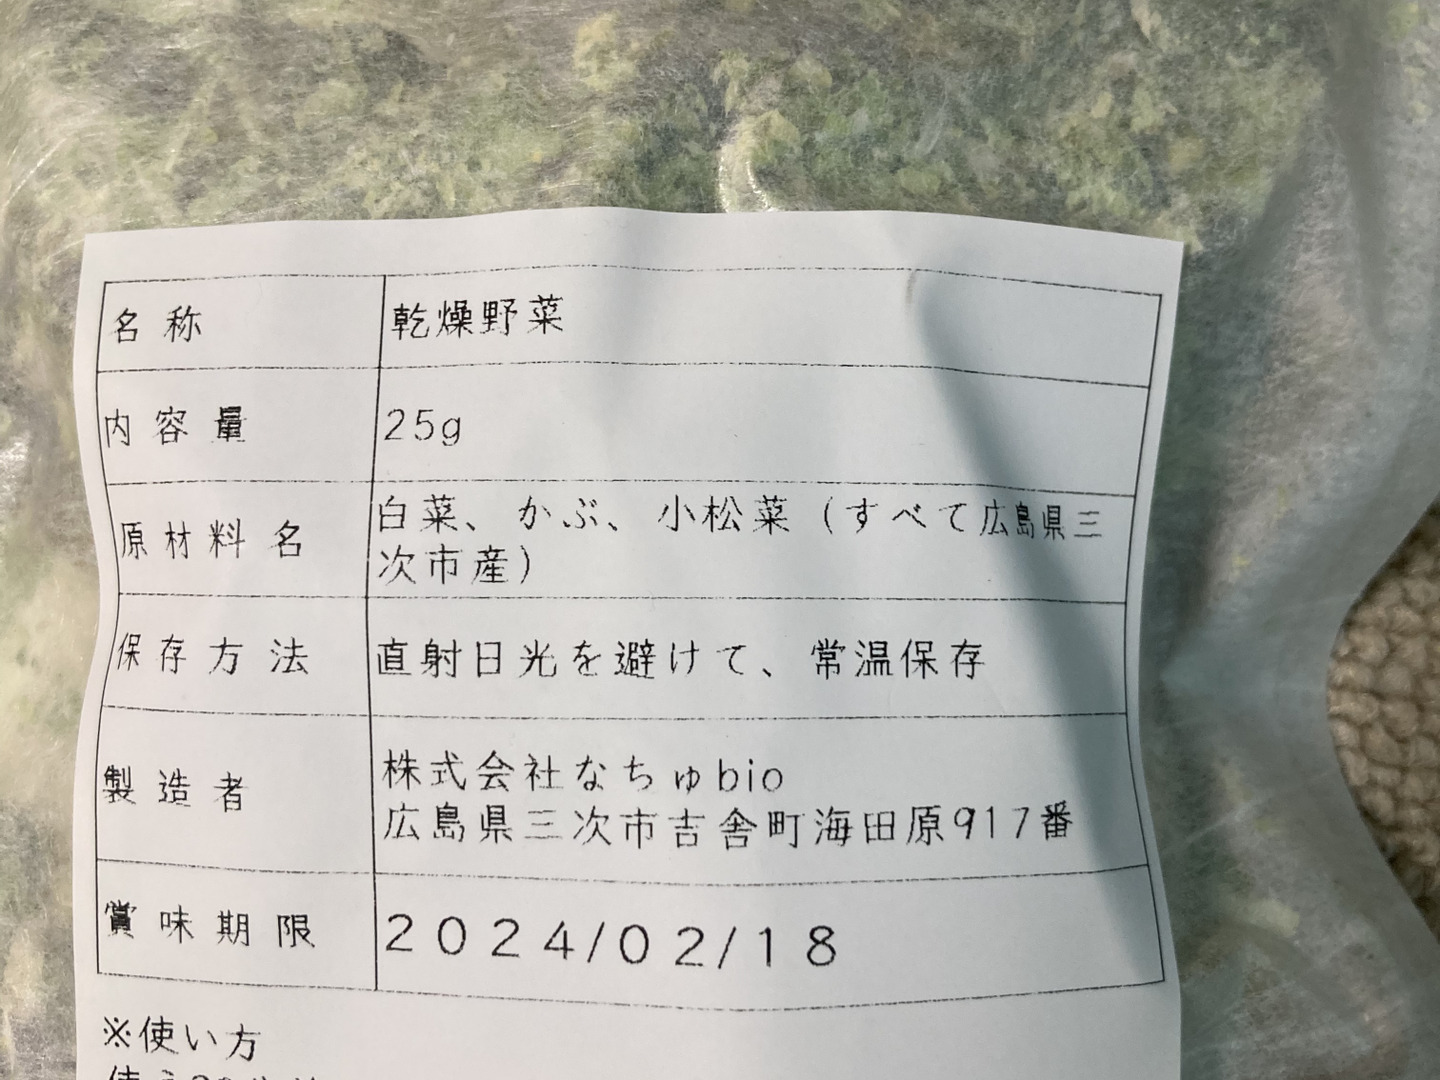 名称 乾燥野菜
内容量 25g
原材料名 白菜、かぶ、小松菜（すべて広島県三
次市産）
保存方法 直射日光を避けて、常温保存
製造者 株式会社なちゅbio
広島県三次市吉舎町海田原917番
賞味期限 2024/02/18
※使い方